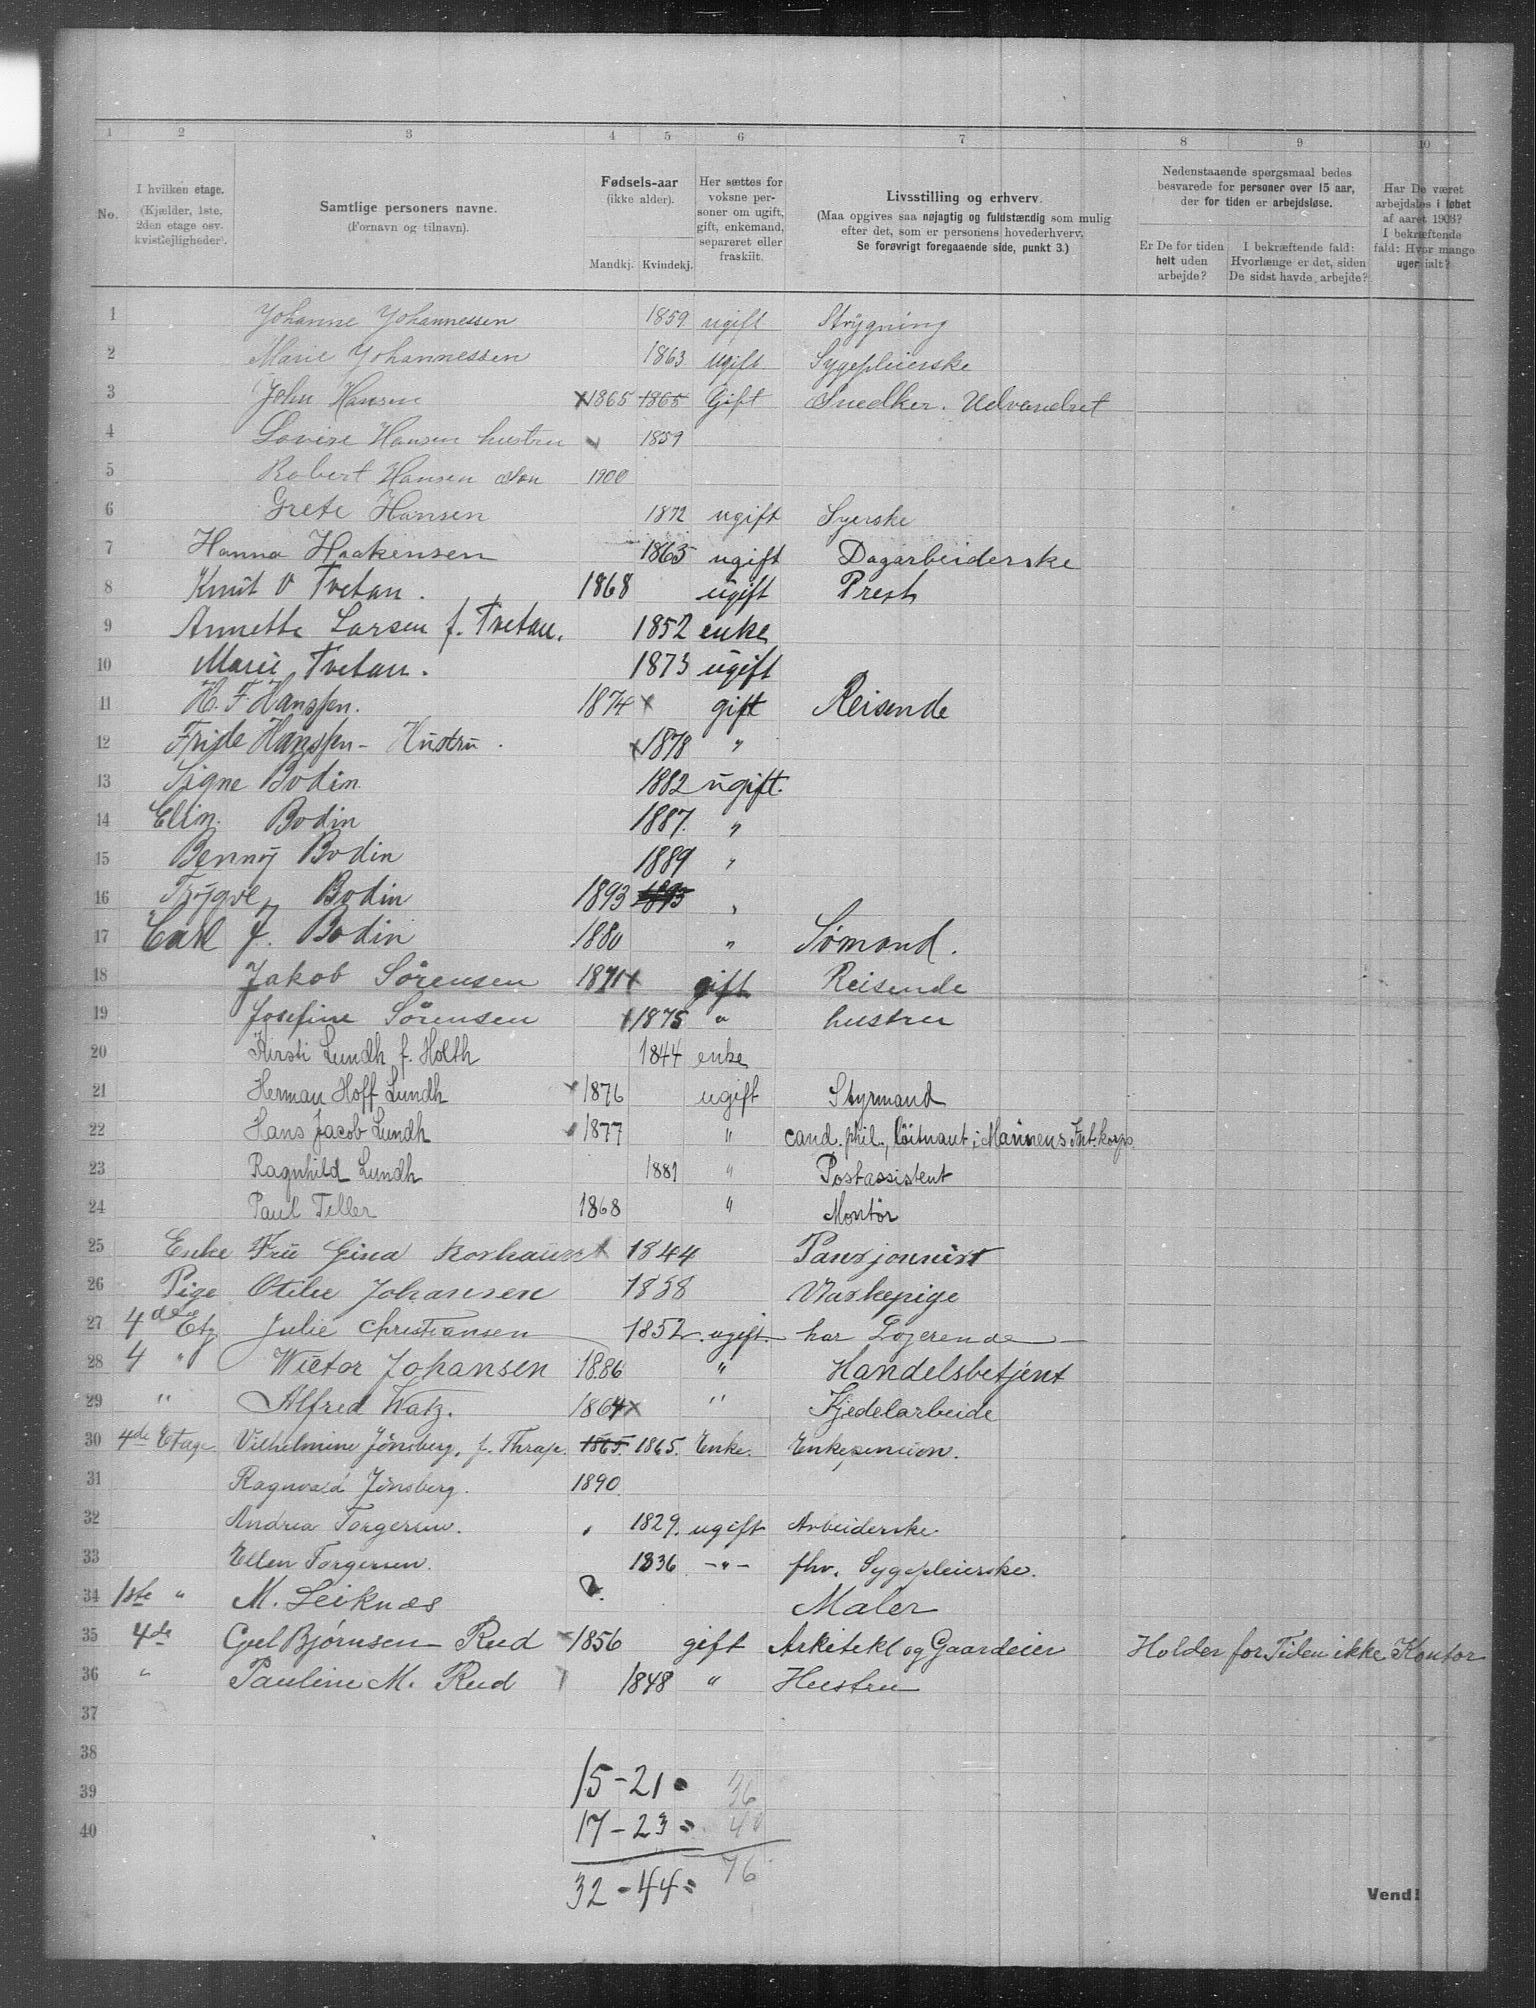 1 2 3 4 5 6 7 8 9 10
No.
I hvilken etage. (Kjælder, 1ste, 2den etage osv. kvistlejligheder).
Samtlige personers navne. (Fornavn og tilnavn).
Fødsels-aar (ikke alder). Mandkj. Kvindekj.
Her sættes for voksne personer om ugift, gift, enkemand, separeret eller fraskilt.
Livsstilling og erhverv. (Maa opgives saa nøjagtig og fuldstændig som mulig efter det, som er personens hovederhverv. Se forøvrigt foregaaende side, punkt 3.)
Nedenstaaende spørgsmaal bedes besvarede for personer over 15 aar, der for tiden er arbejdsløse.
Er De for tiden helt uden arbejde?
I bekræftende fald: Hvorlænge er det, siden De sidst havde arbejde?
Har De været arbejdsløs i løbet af aaret 1903? I bekræftende fald: Hvor mange uger ialt?
1 Johanne Johannessen 1859 ugift Strygning
2 Marie Johannessen 1863 ugift Sygepleierske
3 John Hansen x 1865 1865 Gift Snedker. Udvandret
4 Lovise Hansen hustru 1859
5 Robert Hansen søn 1900
6 Grete Hansen 1872 ugift Syerske
7 Hanna Haakensen 1863 ugift Dagarbeiderske
8 Knut O Tvetan. 1868 ugift Prest
9 Annette Larsen f. Tvetan. 1852 enke
10 Marie Tvetan. 1873 ugift
11 H. F. Hanssen. 1874 x gift Reisende
12 Fride Hanssen - Hustru. x 1878 "
13 Signe Bodin 1882 ugift.
14 Elin. Bodin 1887. "
15 Benny Bodin 1889 "
16 Trygve Bodin 1893 1893 "
17 Carl J. Bodin 1880 " Sømand.
18 Jakob Sörensen 1871 x gift Reisende
19 Josefine Sörensen x 1875 " hustru
20 Kirsti Lundh f. Holth 1844 enke
21 Herman Hoff Lundh x 1876 ugift Styrmand
22 Hans Jacob Lundh 1877 " cand. phil., löitnant i Marinens Int. korps
23 Ragnhild Lundh 1881 " Postassistent
24 Paul Tiller 1868 " Montör
25 Enke Fru Gina x 1844 Pansjonnist
26 Pige Otilie Johansen 1858 Vaskepige
27 4de Etg Julie Christiansen 1852. ugift. har Logerende
28 4 " Wictor Johansen 1886 " Handelsbetjent
29 " Alfred Watz. 1864 x " Kjedelarbeide
30 4de Etage Vilhelmine Jönsberg, f. Thrap. 1865. 1865. Enke. Enkepension.
31 Ragnvald Jönsberg. 1890.
32 Andrea Torgersen. 1829. ugift Arbeiderske.
33 Ellen Torgersen. 1836 -"- fhv. Sygepleierske.
34 1ste " M. Leiknæs ?. Maler
35 4de Bjørnsen Rud x 1856 gift Arkitekt og Gaardeier Holder for Tiden ikke Kontor
36 " Pauline M. Rud 1848 " Hustru
37
38
39
40
15 - 21 = 36
17 - 23 = 40
32 - 44 = 76
Vend!